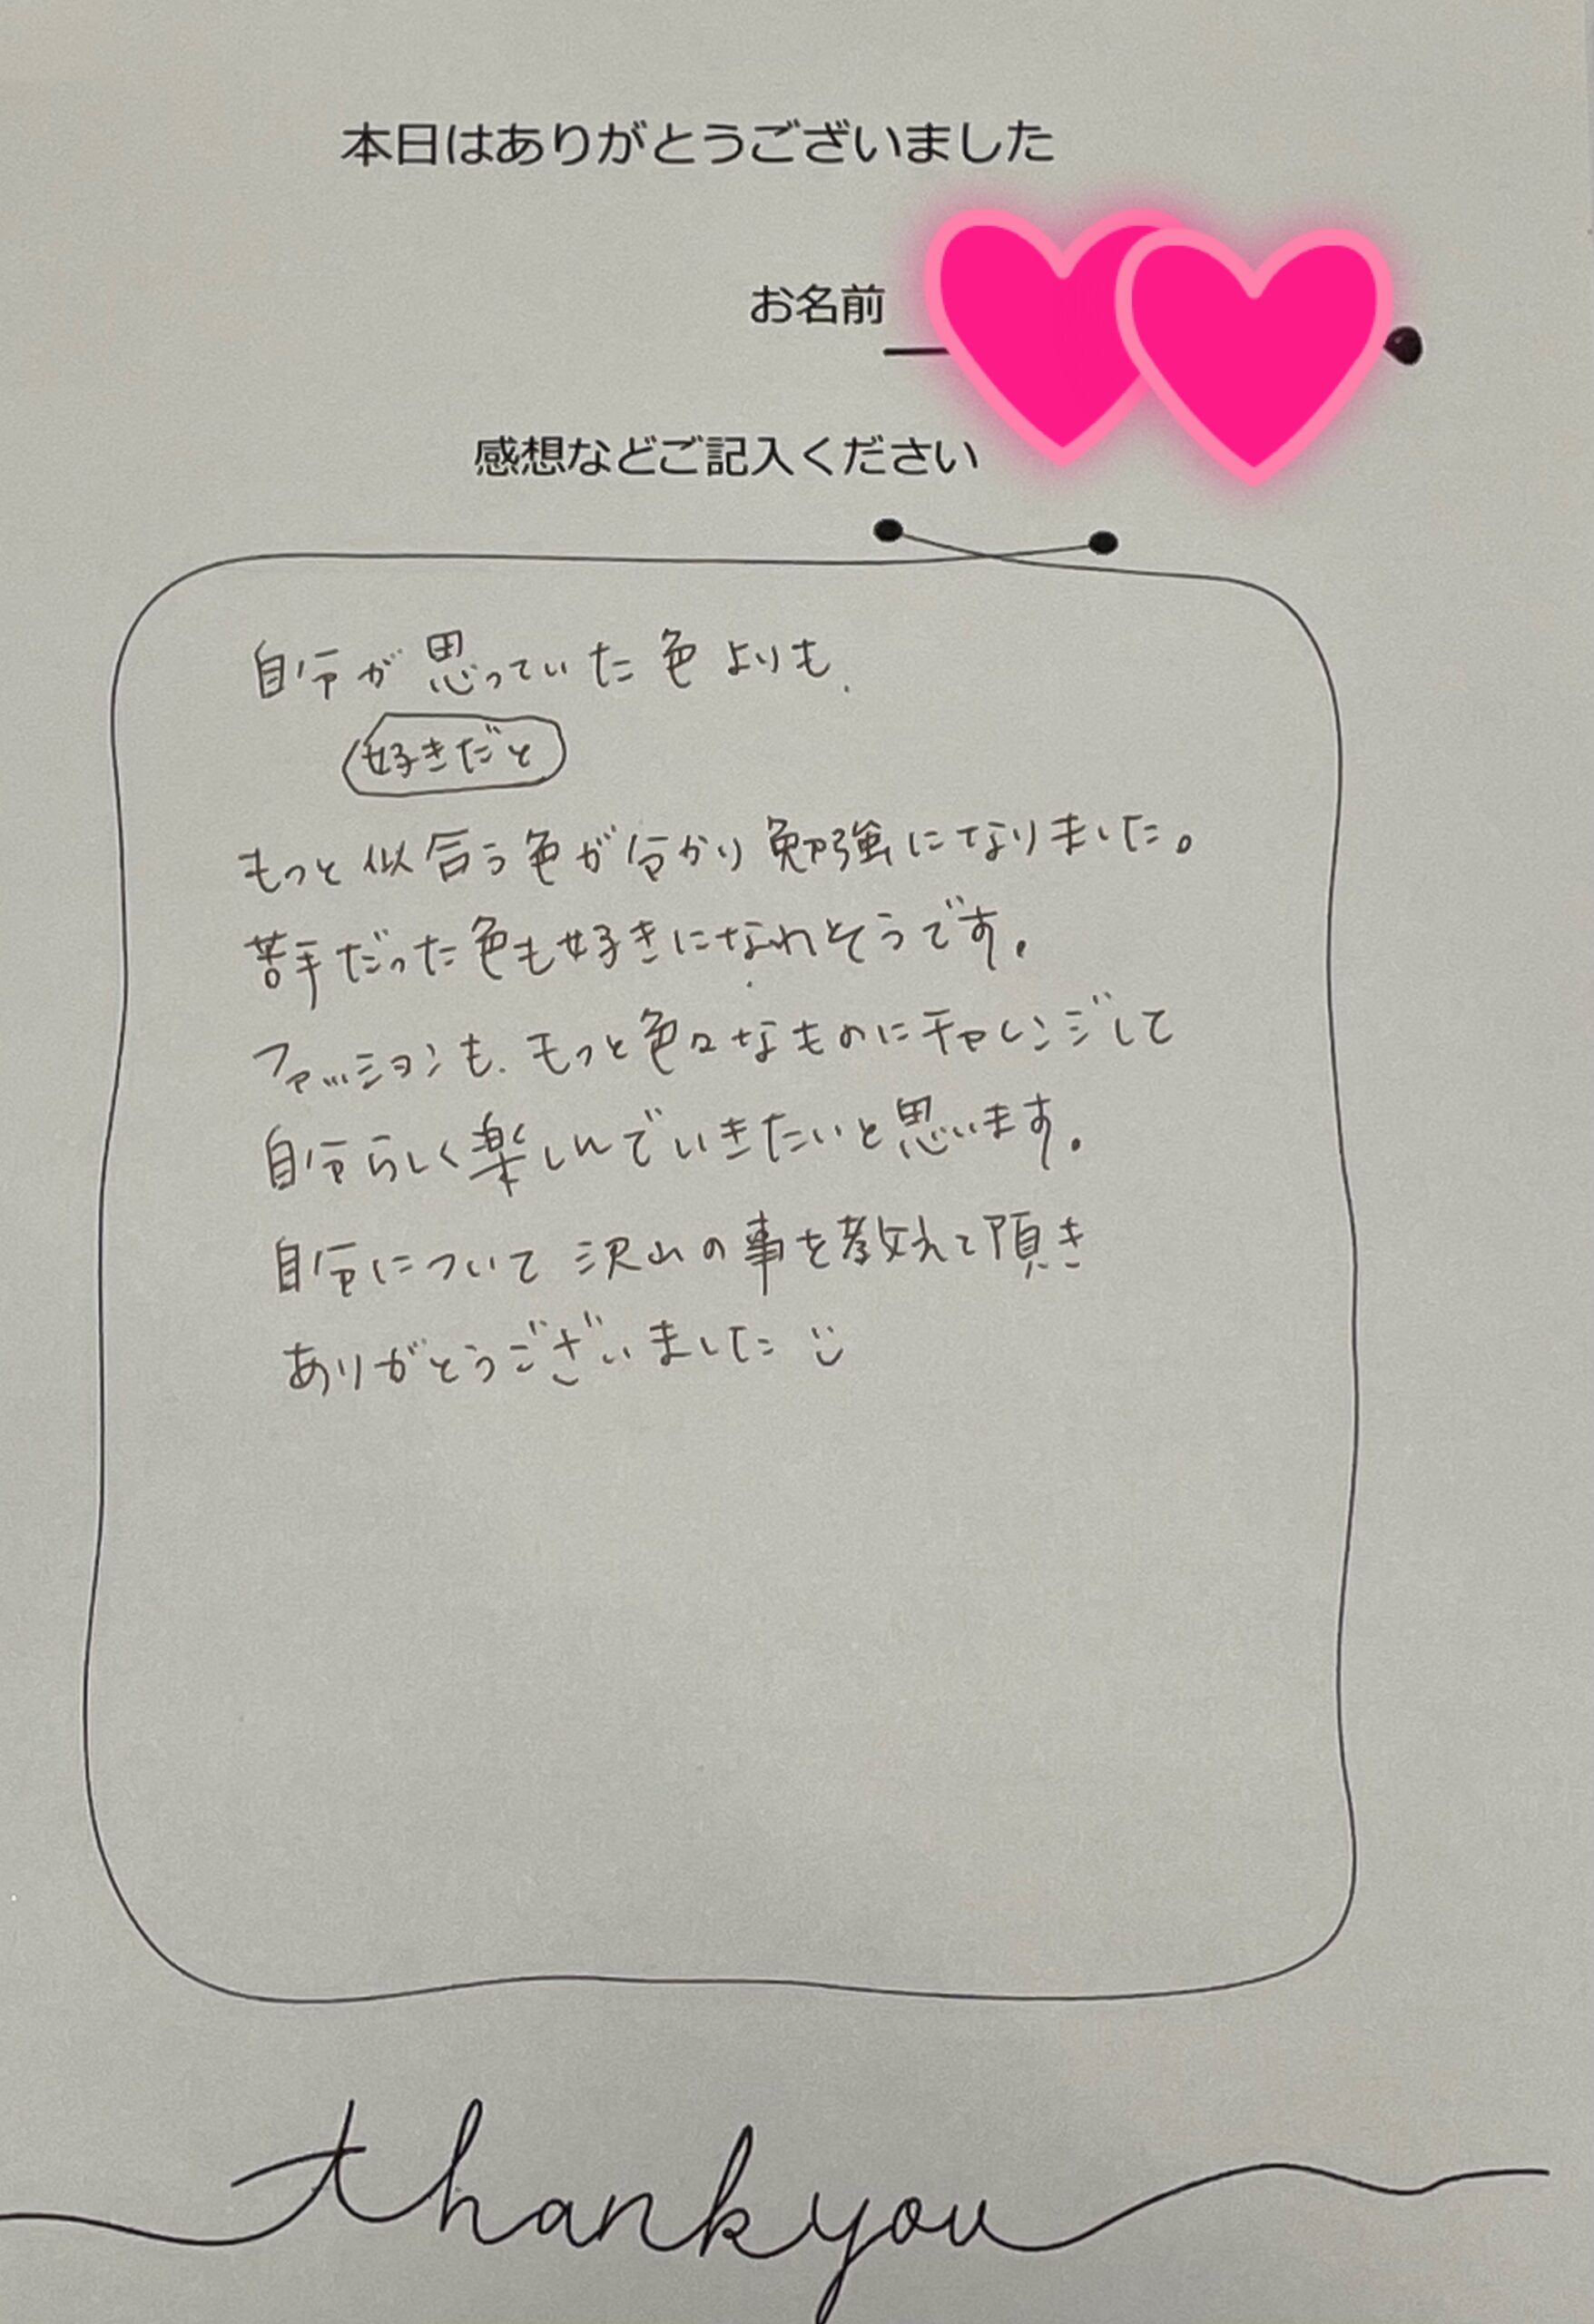 本日はありがとうございました
お名前
感想などご記入ください
自分が思っていた色よりも、
好きだと
もっと似合う色が分かり勉強になりました。
苦手だった色も好きになれそうです。
ファッションも、もっと色々なものにチャレンジして
自分らしく楽しんでいきたいと思います。
自分について沢山の事を教えて頂き
ありがとうございました
thank you